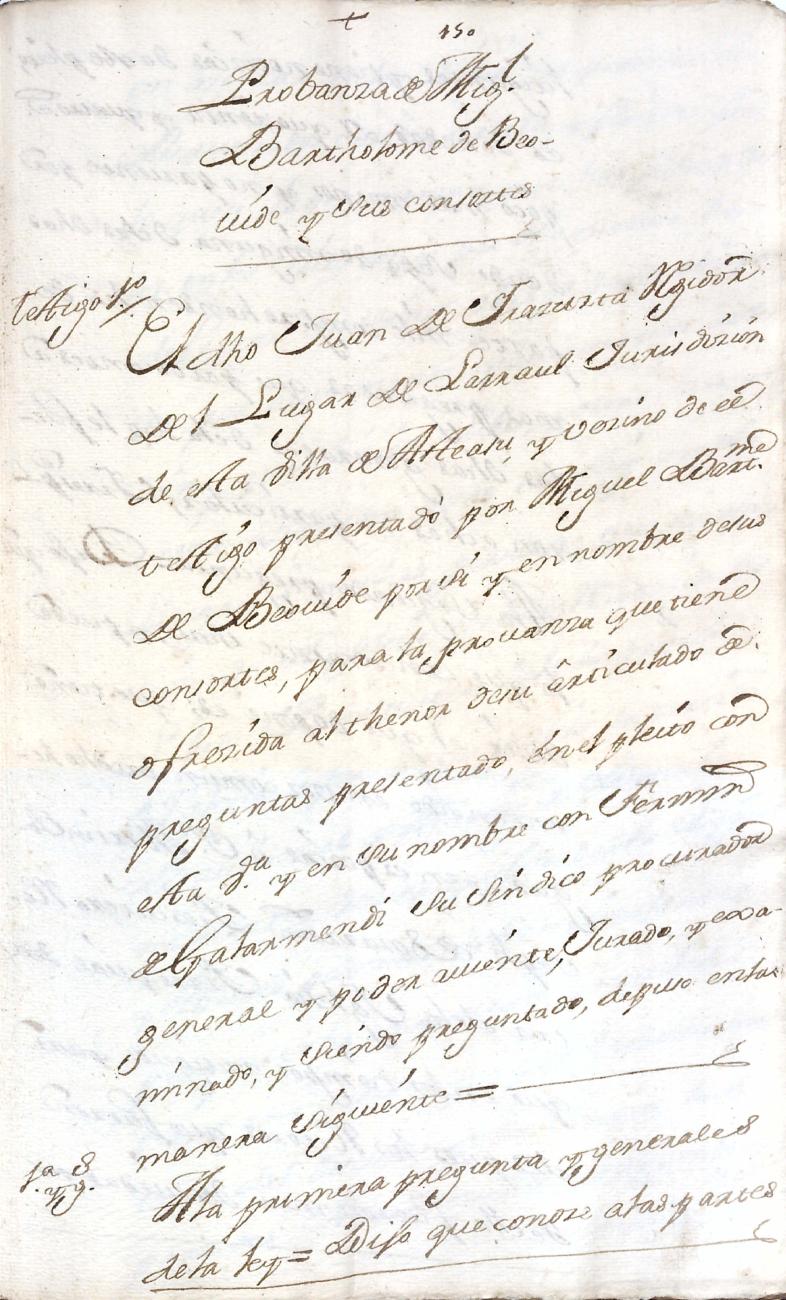 +
150
Probanza de Mig.l
Bartholome de Beo-
uide y sus consortes
testigo 1º
El dho Juan de Irazusta Regidor
del Lugar de Larraul Jurisdizión
de esta Villa de Asteasu, y vezino de el
testigo presentado por Miguel Bart.me
de Beouide por si y en nombre de sus
consortes, para la prouanza que tiene
ofrezida al thenor de su articulado de
preguntas presentado, en el pleito con
esta d.ha y en su nombre con Fermin
de Galarmendi su sindico procurador
general y poder auiente, Jurado, y exa-
minado, y siendo preguntado, depuso en la
manera siguiente =
1.a
y g.s
A la primera pregunta y generales
de la ley = Dijo que conoze a las partes